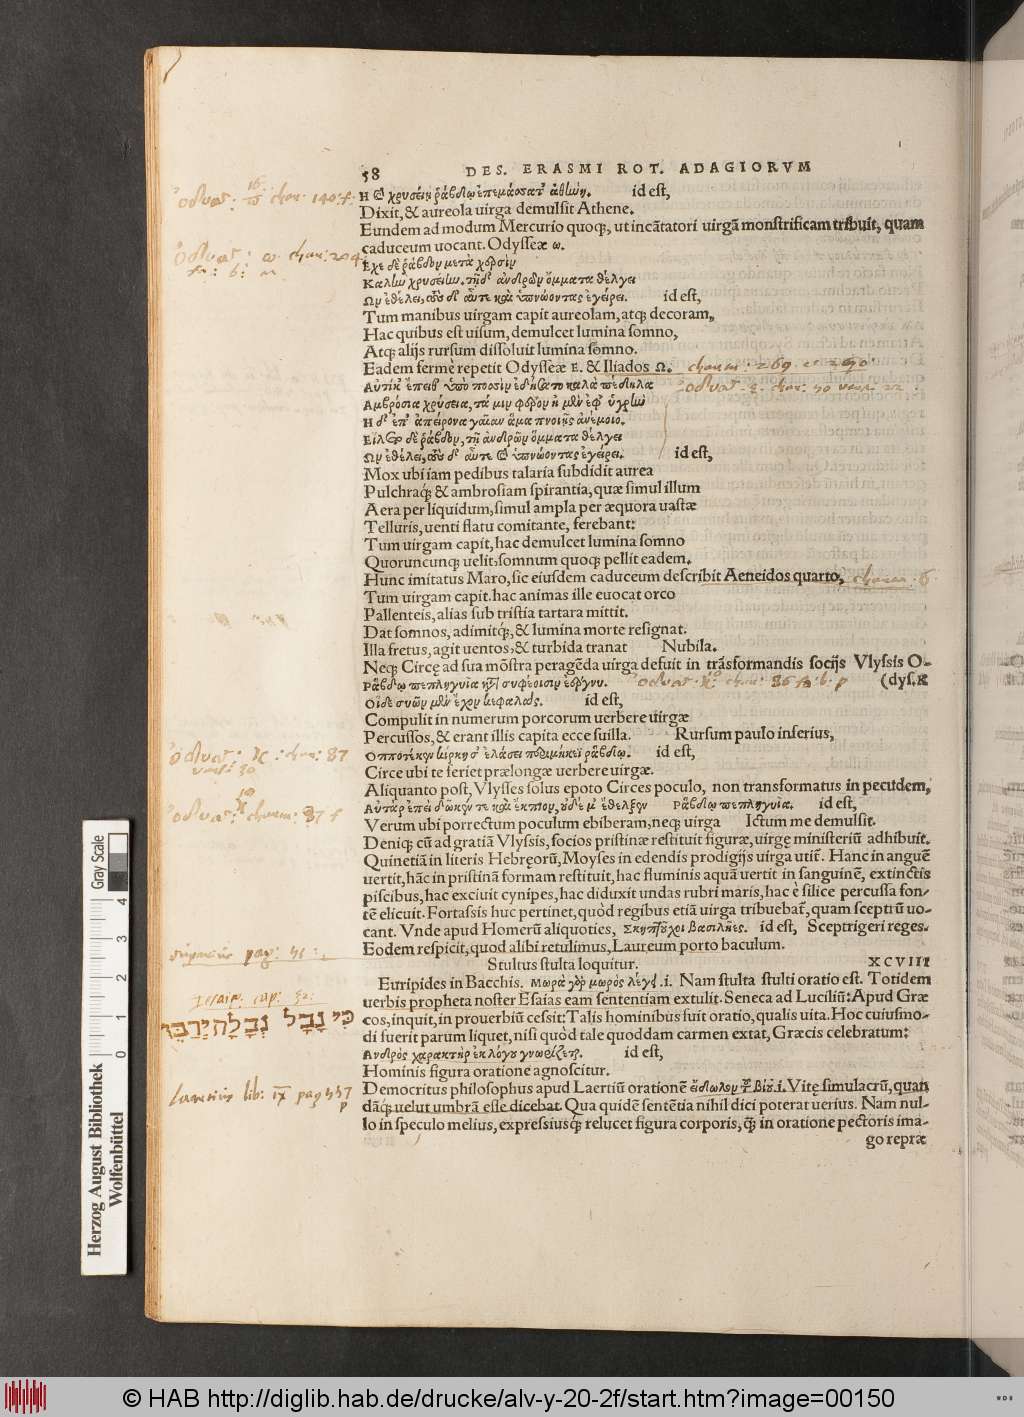 58 DES. ERASMI ROT. ADAGIORVM
Η καὶ χρυσείῃ ῥάβδῳ ἐπεμάσσατ' ἀθήνη. id est,
Dixit, & aureola uirga demulsit Athene.
Eundem ad modum Mercurio quoq;, ut incãtatori uirgã monstrificam tribuit, quam
caduceum uocant. Odysseæ ω.
Εχε δὲ ῥάβδον μετὰ χερσὶν
Καλὴν χρυσείην, τῇ δ' ἀνδρῶν ὄμματα θέλγει
Ων ἐθέλει, τοὺς δ' αὖτε καὶ ὑπνώοντας ἐγείρει. id est,
Tum manibus uirgam capit aureolam, atq; decoram,
Hac quibus est uisum, demulcet lumina somno,
Atq; alijs rursum dissoluit lumina somno.
Eadem fermè repetit Odysseæ Ε. & Iliados Ω.
Αὐτίκ' ἔπειθ' ὑπὸ ποσσὶν ἐδήσατο καλὰ πέδιλα
Αμβρόσια χρύσεια, τά μιν φέρον ἠ μὲν ἐφ' ὑγρὴν
Η δ' ἐπ' ἀπείρονα γαῖαν ἅμα πνοιῇς ἀνέμοιο.
Εἵλετο δὲ ῥάβδον, τῇ ἀνδρῶν ὄμματα θέλγει
Ων ἐθέλει, τοὺς δ' αὖτε καὶ ὑπνώοντας ἐγείρει. id est,
Mox ubi iam pedibus talaria subdidit aurea
Pulchraq́; & ambrosiam spirantia, quæ simul illum
Aera per liquidum, simul ampla per æquora uastæ
Telluris, uenti flatu comitante, ferebant:
Tum uirgam capit, hac demulcet lumina somno
Quoruncunq; uelit, somnum quoq; pellit eadem.
Hunc imitatus Maro, sic eiusdem caduceum describit Aeneidos quarto,
Tum uirgam capit. hac animas ille euocat orco
Pallenteis, alias sub tristia tartara mittit.
Dat somnos, adimitq́;, & lumina morte resignat.
Illa fretus, agit uentos, & turbida tranat Nubila.
Neq; Circę ad sua mõstra peragẽda uirga defuit in trãsformandis socijs Vlyssis O-
(dys. Κ
Ράβδῳ πεπληγυῖα κατὰ συφεοῖσιν ἐέργνυ.
Οἱ δὲ συῶν μὲν ἔχον κεφαλάς. id est,
Compulit in numerum porcorum uerbere uirgæ
Percussos, & erant illis capita ecce suilla. Rursum paulo inferius,
Οπποτέ κεν κίρκη σ' ἐλάσει περιμήκεϊ ῥάβδῳ. id est,
Circe ubi te feriet prælongæ uerbere uirgæ.
Aliquanto post, Vlysses solus epoto Circes poculo, non transformatus in pecudem,
Αὐτὰρ ἐπεὶ δῶκέν τε καὶ ἔκπιον, οὐδέ μ' ἔθελξεν Ράβδῳ πεπληγυῖα. id est,
Verum ubi porrectum poculum ebiberam, neq; uirga Ictum me demulsit.
Deniq; cũ ad gratiã Vlyssis, socios pristinæ restituit figuræ, uirgę ministeriũ adhibuit.
Quinetiã in literis Hebręorũ, Moyses in edendis prodigijs uirga utit̃. Hanc in anguẽ
uertit, hãc in pristinã formam restituit, hac fluminis aquã uertit in sanguinẽ, extinctis
piscibus, hac exciuit cynipes, hac diduxit undas rubri maris, hac è silice percussa fon-
tẽ elicuit. Fortassis huc pertinet, quòd regibus etiã uirga tribuebat̃, quam sceptrũ uo-
cant. Vnde apud Homerũ aliquoties, Σκηπτοῦχοι βασιλῆες. id est, Sceptrigeri reges.
Eodem respicit, quod alibi retulimus, Laureum porto baculum.
Stultus stulta loquitur. XCVIII
Euripides in Bacchis. Μωρὰ γὰρ μωρὸς λέγει .i. Nam stulta stulti oratio est. Totidem
uerbis propheta noster Esaias eam sententiam extulit. Seneca ad Luciliũ: Apud Græ
cos, inquit, in prouerbiũ cessit: Talis hominibus fuit oratio, qualis uita. Hoc cuiusmo-
di fuerit parum liquet, nisi quòd tale quoddam carmen extat, Græcis celebratum:
Ανδρὸς χαρακτὴρ ἐκ λόγου γνωρίζεται. id est,
Hominis figura oratione agnoscitur.
Democritus philosophus apud Laertiũ orationẽ εἴδωλον τοῦ βίου .i. Vitę simulacrũ, quan
dãq́; uelut umbrã esse dicebat. Qua quidẽ sentẽtia nihil dici poterat uerius. Nam nul-
lo in speculo melius, expressiusq́; relucet figura corporis, q̃; in oratione pectoris ima-
go repræ
כי נבל נבלה ידבר
Iesaie. cap: 32:
Laertius lib: IX pag 557
Gray Scale
0 1 2 3 4
Herzog August Bibliothek
Wolfenbüttel
© HAB http://diglib.hab.de/drucke/alv-y-20-2f/start.htm?image=00150